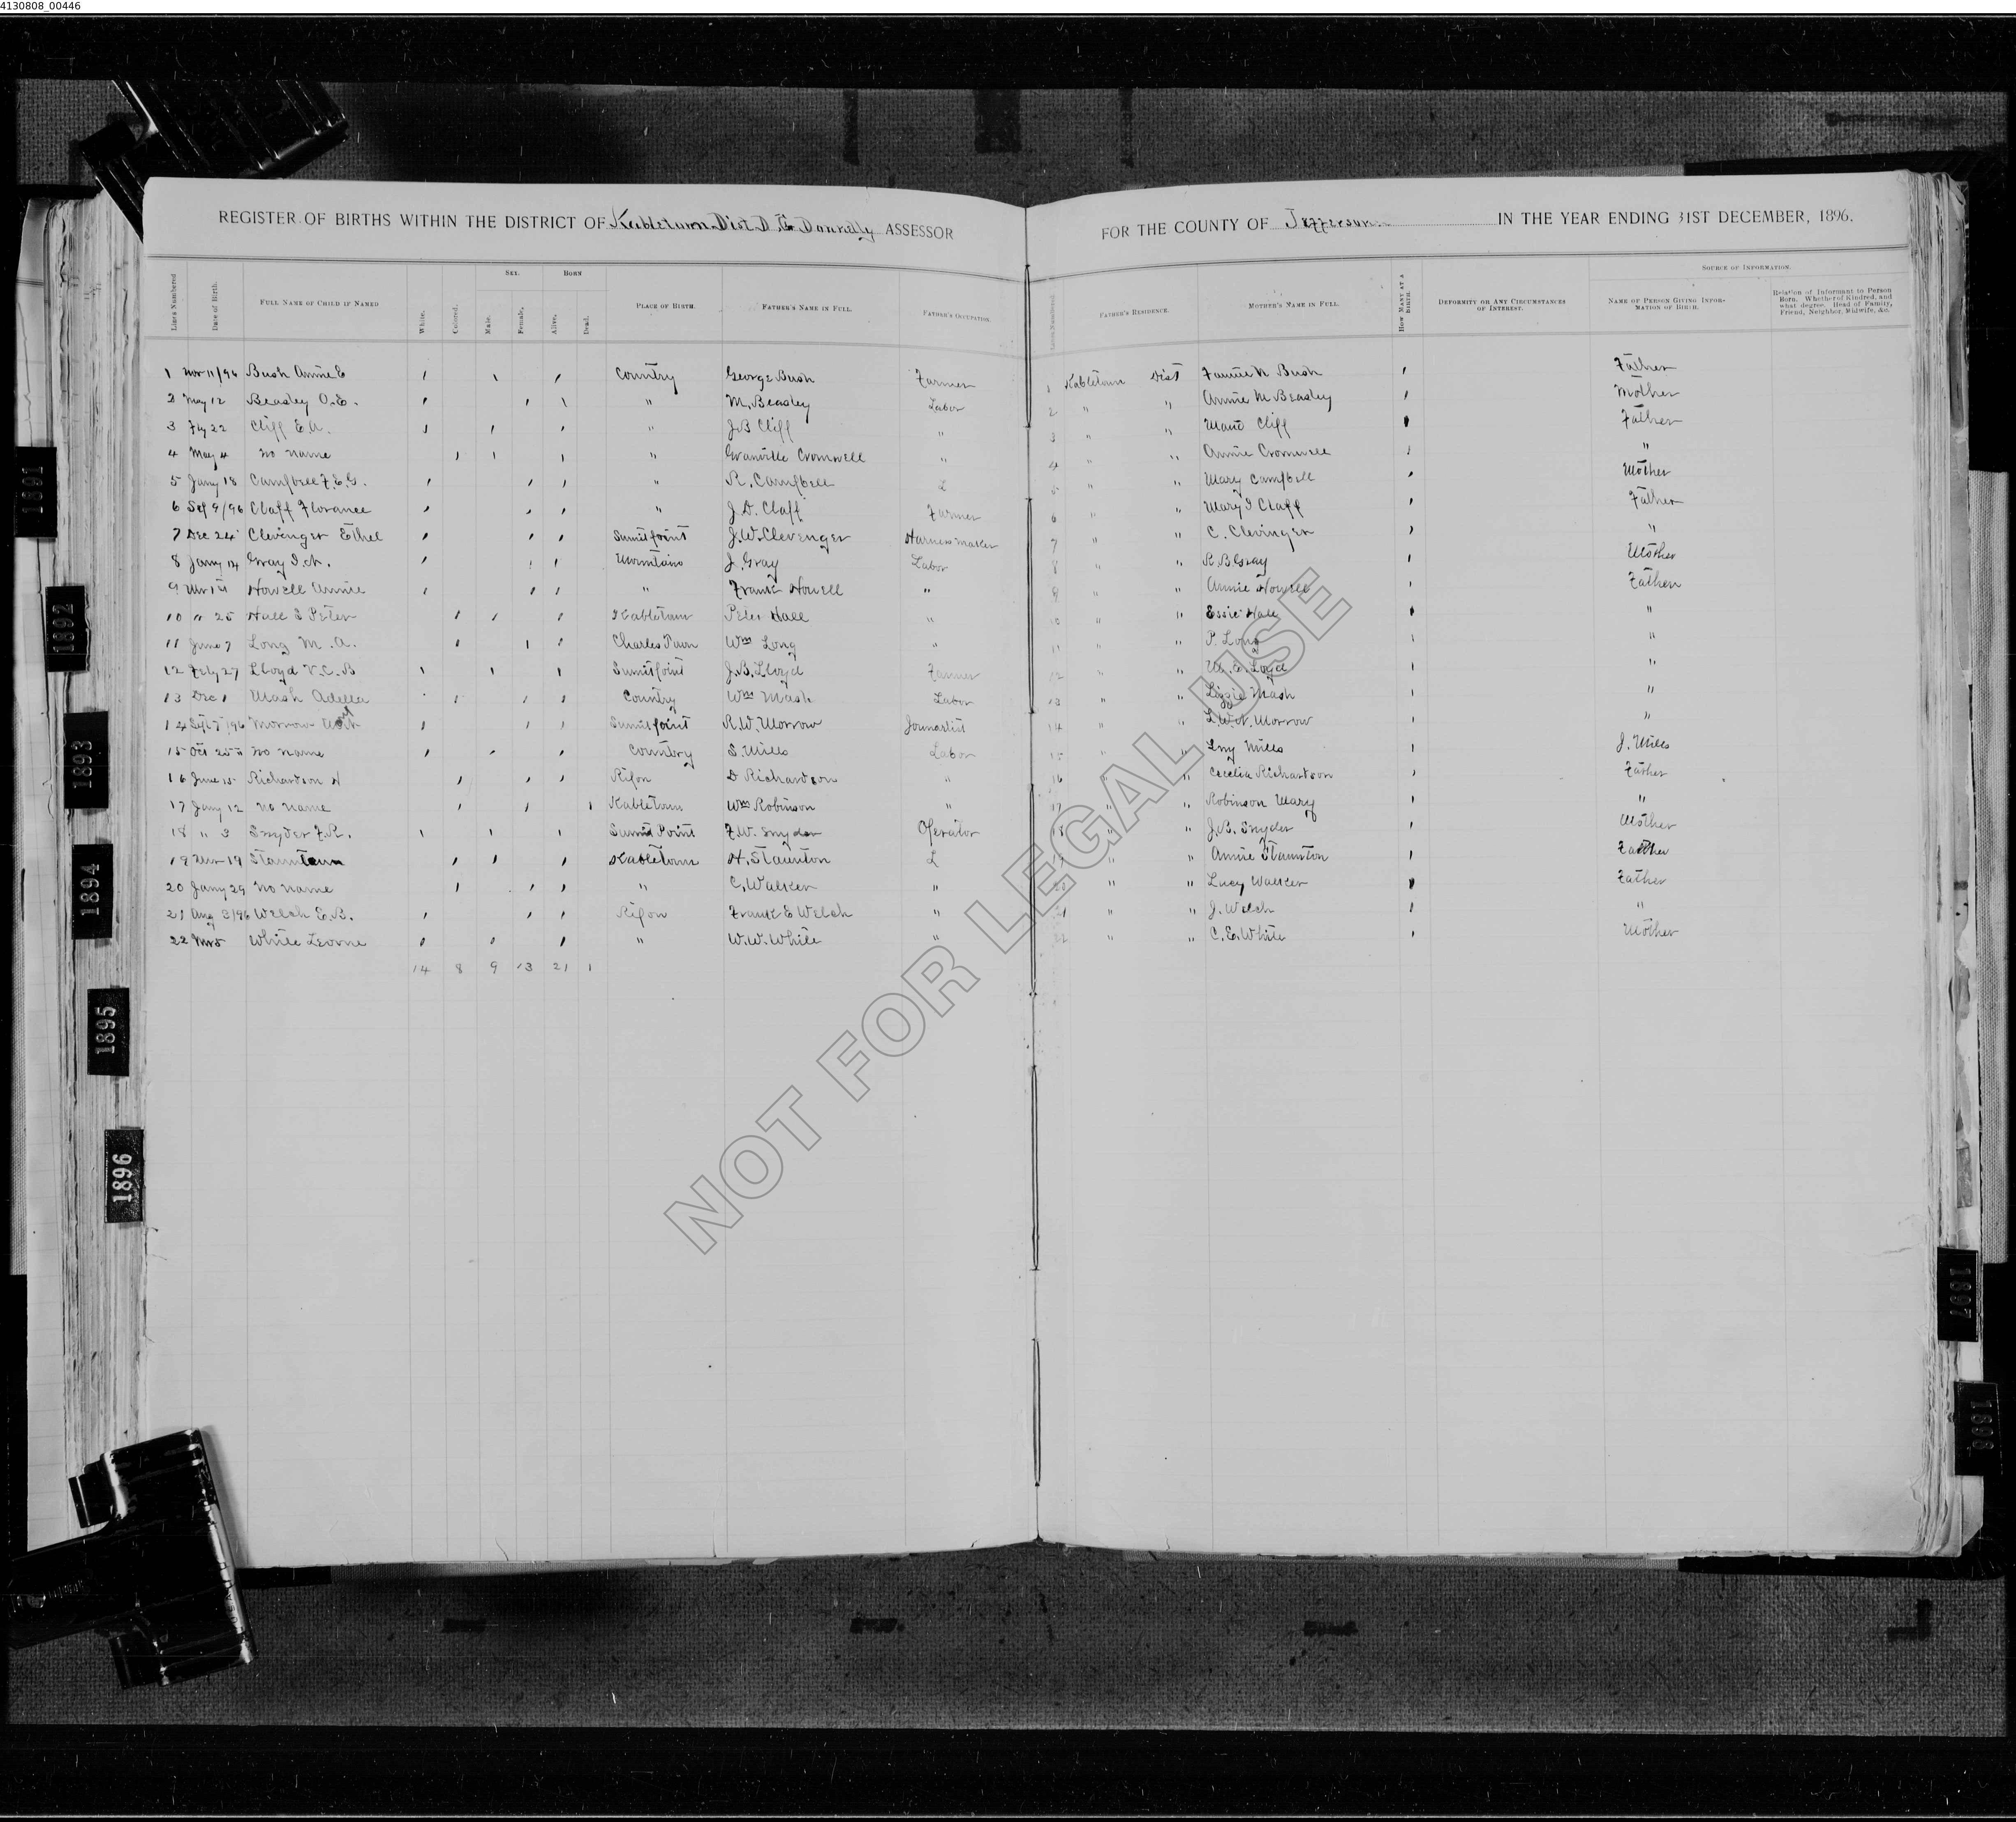 4130808_00446
REGISTER OF BIRTHS WITHIN THE DISTRICT OF Kabletown Dist D. Donnelly ASSESSOR FOR THE COUNTY OF Jefferson IN THE YEAR ENDING 31ST DECEMBER, 1896.
Lines Numbered Date of Birth. FULL NAME OF CHILD IF NAMED White. Colored. SEX. Male. Female. BORN Alive. Dead. PLACE OF BIRTH. FATHER'S NAME IN FULL. FATHER'S OCCUPATION. FATHER'S RESIDENCE. MOTHER'S NAME IN FULL. HOW MANY AT A BIRTH. DEFORMITY OR ANY CIRCUMSTANCES OF INTEREST. SOURCE OF INFORMATION. NAME OF PERSON GIVING INFORMATION OF BIRTH. Relation of Informant to Person Born. Whether of Kindred, and what degree. Head of Family, Friend, Neighbor, Midwife, &c.
1 Nov 11/96 Bush Annie E 1 1 1 Country George Bush Farmer 1 Kabletown Dist Fannie N Bush 1 Father
2 May 12 Beasley O.E. 1 1 1 " M. Beasley Labor 2 " " Annie M Beasley 1 Mother
3 Fby 22 Cliff E.A. 1 1 1 " J B Cliff " 3 " " Maud Cliff 1 Father
4 May 4 no name 1 1 1 " Granville Cromwell " 4 " " Annie Cromwell 1 "
5 Jany 18 Campbell F.E.G. 1 1 1 " R. Campbell L 5 " " Mary Campbell 1 Mother
6 Sep 9/96 Clapp Florance 1 1 1 " J.D. Clapp Farmer 6 " " Mary I Clapp 1 Father
7 Dec 24 Clevenger Ethel 1 1 1 Sumit point J.W. Clevenger Harness maker 7 " " C. Clevinger 1 "
8 Jany 14 Gray 1 1 1 Mountain J. Gray Labor 8 " " R.B. Gray 1 Mother
9 Howell Annie 1 1 1 " Frank Howell " 9 " " Annie Howell 1 Father
10 " 25 Hall S Peter 1 1 1 Kabletown Peter Hall " 10 " " Essie Hall 1 "
11 June 7 Long M.A. 1 1 1 Charles Town Wm Long " 11 " " P. Long 1 "
12 Feby 27 Lloyd V.C.B 1 1 1 Sumit point J.B. Lloyd Farmer 12 " " M.E. Loyd 1 "
13 Dec 1 Mash Adella 1 1 1 Country Wm Mash Labor 13 " " Lizzie Mash 1 "
14 Sept 7/96 Morrow 1 1 1 Sumit point R.W. Morrow Journalist 14 " " L.W. Morrow 1 "
15 Oct 25 no name 1 1 1 Country S. Mills Labor 15 " " Mills 1 J. Mills
16 June 15 Richardson H 1 1 1 Ripon D Richardson " 16 " " Cecelia Richardson 1 Father
17 Jany 12 no name 1 1 1 Kabletown Wm Robinson " 17 " " Robinson Mary 1 "
18 " 3 Snyder F.R. 1 1 1 Sumit Point F.W. Snyder Operator 18 " " J.B. Snyder 1 Mother
19 Mar 19 Stauntaun 1 1 1 Kabletown H. Staunton L 19 " " Annie Staunton 1 Father
20 Jany 29 no name 1 1 1 " C. Walker " 20 " " Lucy Walker 1 Father
21 Aug 3/96 Welch E.B. 1 1 1 Ripon Frank E Welch " 21 " " J. Welch 1 "
22 Mr 5 White Leorne 1 1 1 " W.W. White " 22 " " C.E. White 1 Mother
14 8 9 13 21 1
1891
1892
1893
1894
1895
1896
1897
1898
NOT FOR LEGAL USE